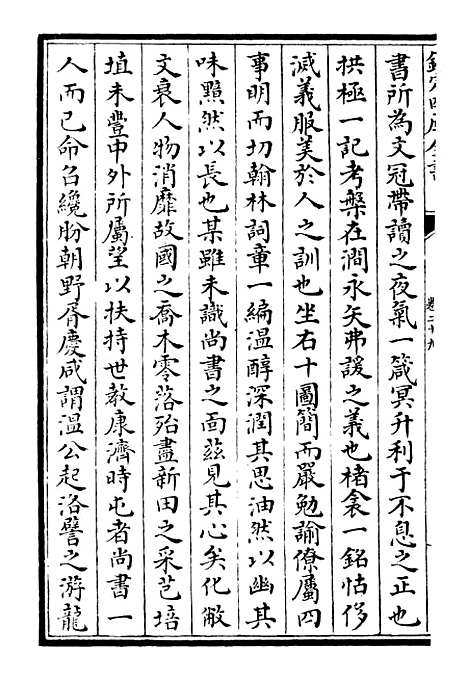 欽定四庫全書
卷二十九
書所為文冠帶讀之夜氣一箴冥升利于不息之正也
拱極一記考槃在澗永矢弗諼之義也楮衾一銘怙侈
滅義服美於人之訓也坐右十圖簡而嚴勉諭僚屬四
事明而切翰林詞章一編温醇深潤其思油然以幽其
味黯然以長也某雖未識尚書之面茲見其心矣化敝
文衰人物消靡故國之喬木零落殆盡新田之采芑培
埴未豐中外所屬望以扶持世教康濟時屯者尚書一
人而已命召纔朌朝野胥慶咸謂溫公起洛譬之游龍